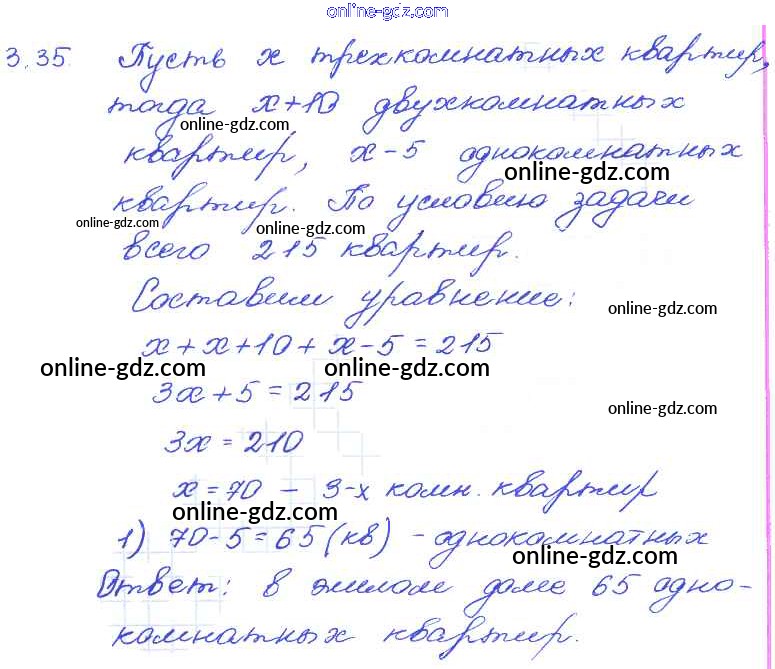 online-gdz.com
3.35. Пусть x трехкомнатных квартир,
тогда x+10 двухкомнатных
online-gdz.com
квартир, x-5 однокомнатных
online-gdz.com
квартир. По условию задачи
online-gdz.com online-gdz.com
всего 215 квартир.
Составим уравнение:
online-gdz.com
x+x+10+x-5=215
online-gdz.com online-gdz.com
3x+5=215
online-gdz.com
3x=210
x=70 - 3-х комн. квартир
online-gdz.com
1) 70-5=65 (кв) - однокомнатных
online-gdz.com
Ответ: в жилом доме 65 одно-
комнатных квартир.